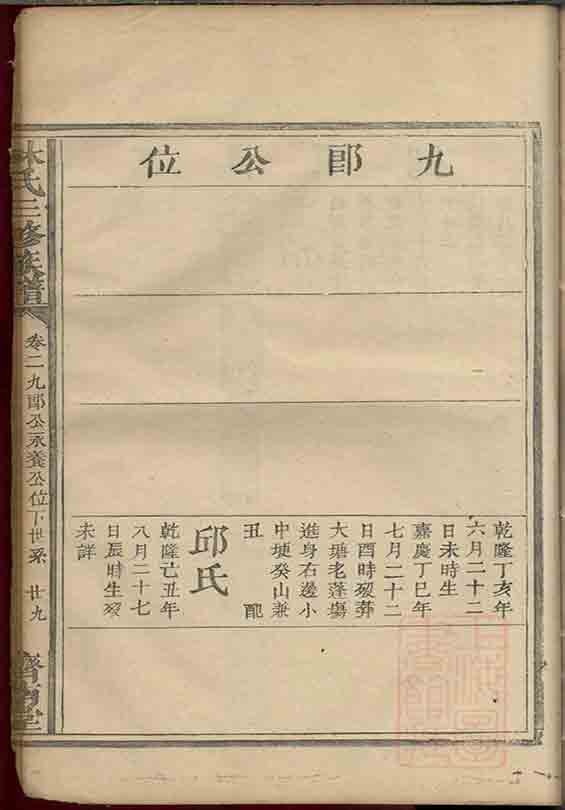 九郎公位
乾隆丁亥年
六月二十二
日未時生
嘉慶丁巳年
七月二十二
日酉時歿葬
大塘老蓬塲
進身右邊小
中埂癸山兼
丑 配
邱氏
乾隆己丑年
八月二十七
日辰時生歿
未詳
林氏三修族譜
卷二九郎公永養公位下世系 廿九
堂